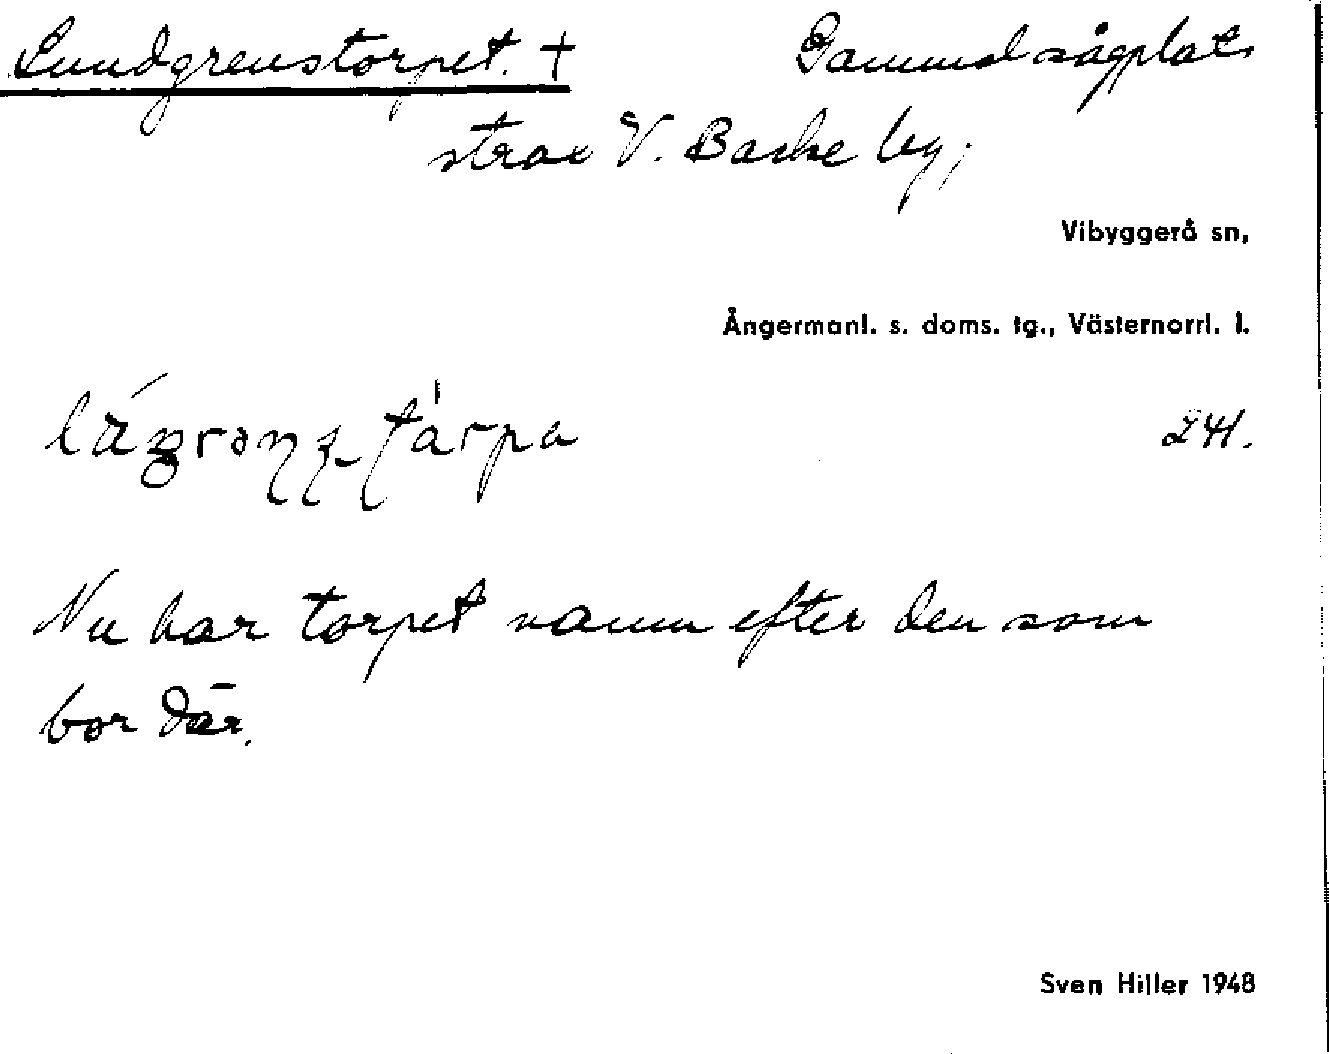 Lundgrenstorpet. + Gammal sågplats
strax V. Backe by;
Vibyggerå sn,
Ångermanl. s. doms. tg., Västernorrl. l.
241.
Nu har torpet namn efter den som
bor där.
Sven Hiller 1948